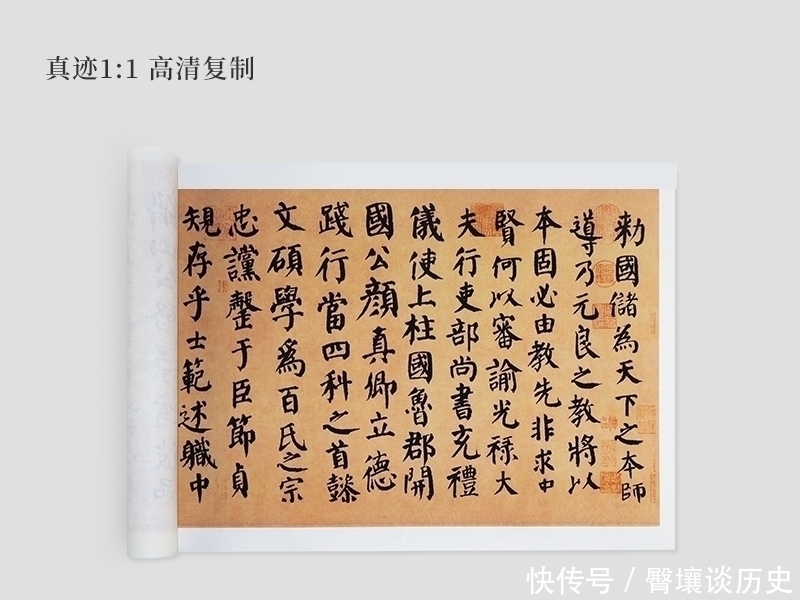 真迹1:1 高清复制
勅國儲為天下之本師
導乃元良之教將以
本固必由教先非求中
賢何以審諭光祿大
夫行吏部尚書充禮
儀使上柱國魯郡開
國公顏真卿立德
踐行當四科之首懿
文碩學爲百氏之宗
忠讜罄于臣節貞
規存乎士範述職中
快传号 / 臀壤谈历史